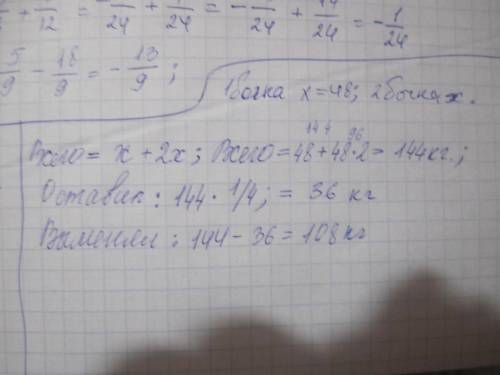 + /12 = - /24 + /24 = - /24 + /24 = - 1/24
5/9 - 18/9 = - 13/9 ;
1 бочка x = 48; 2 бочка x.
144 96
Всего = x + 2x; Всего = 48 + 48·2 = 144 кг.;
Оставил: 144 · 1/4; = 36 кг
Выменял: 144 - 36 = 108 кг